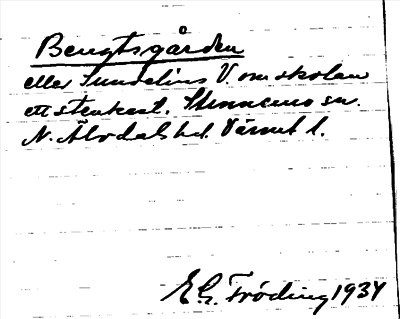 Bengtsgården
eller Sundelius V. om skolan
ett stenkast. Stennemo sn.
N. Älvdals hd. Värml. l.
E. G. Fröding 1934